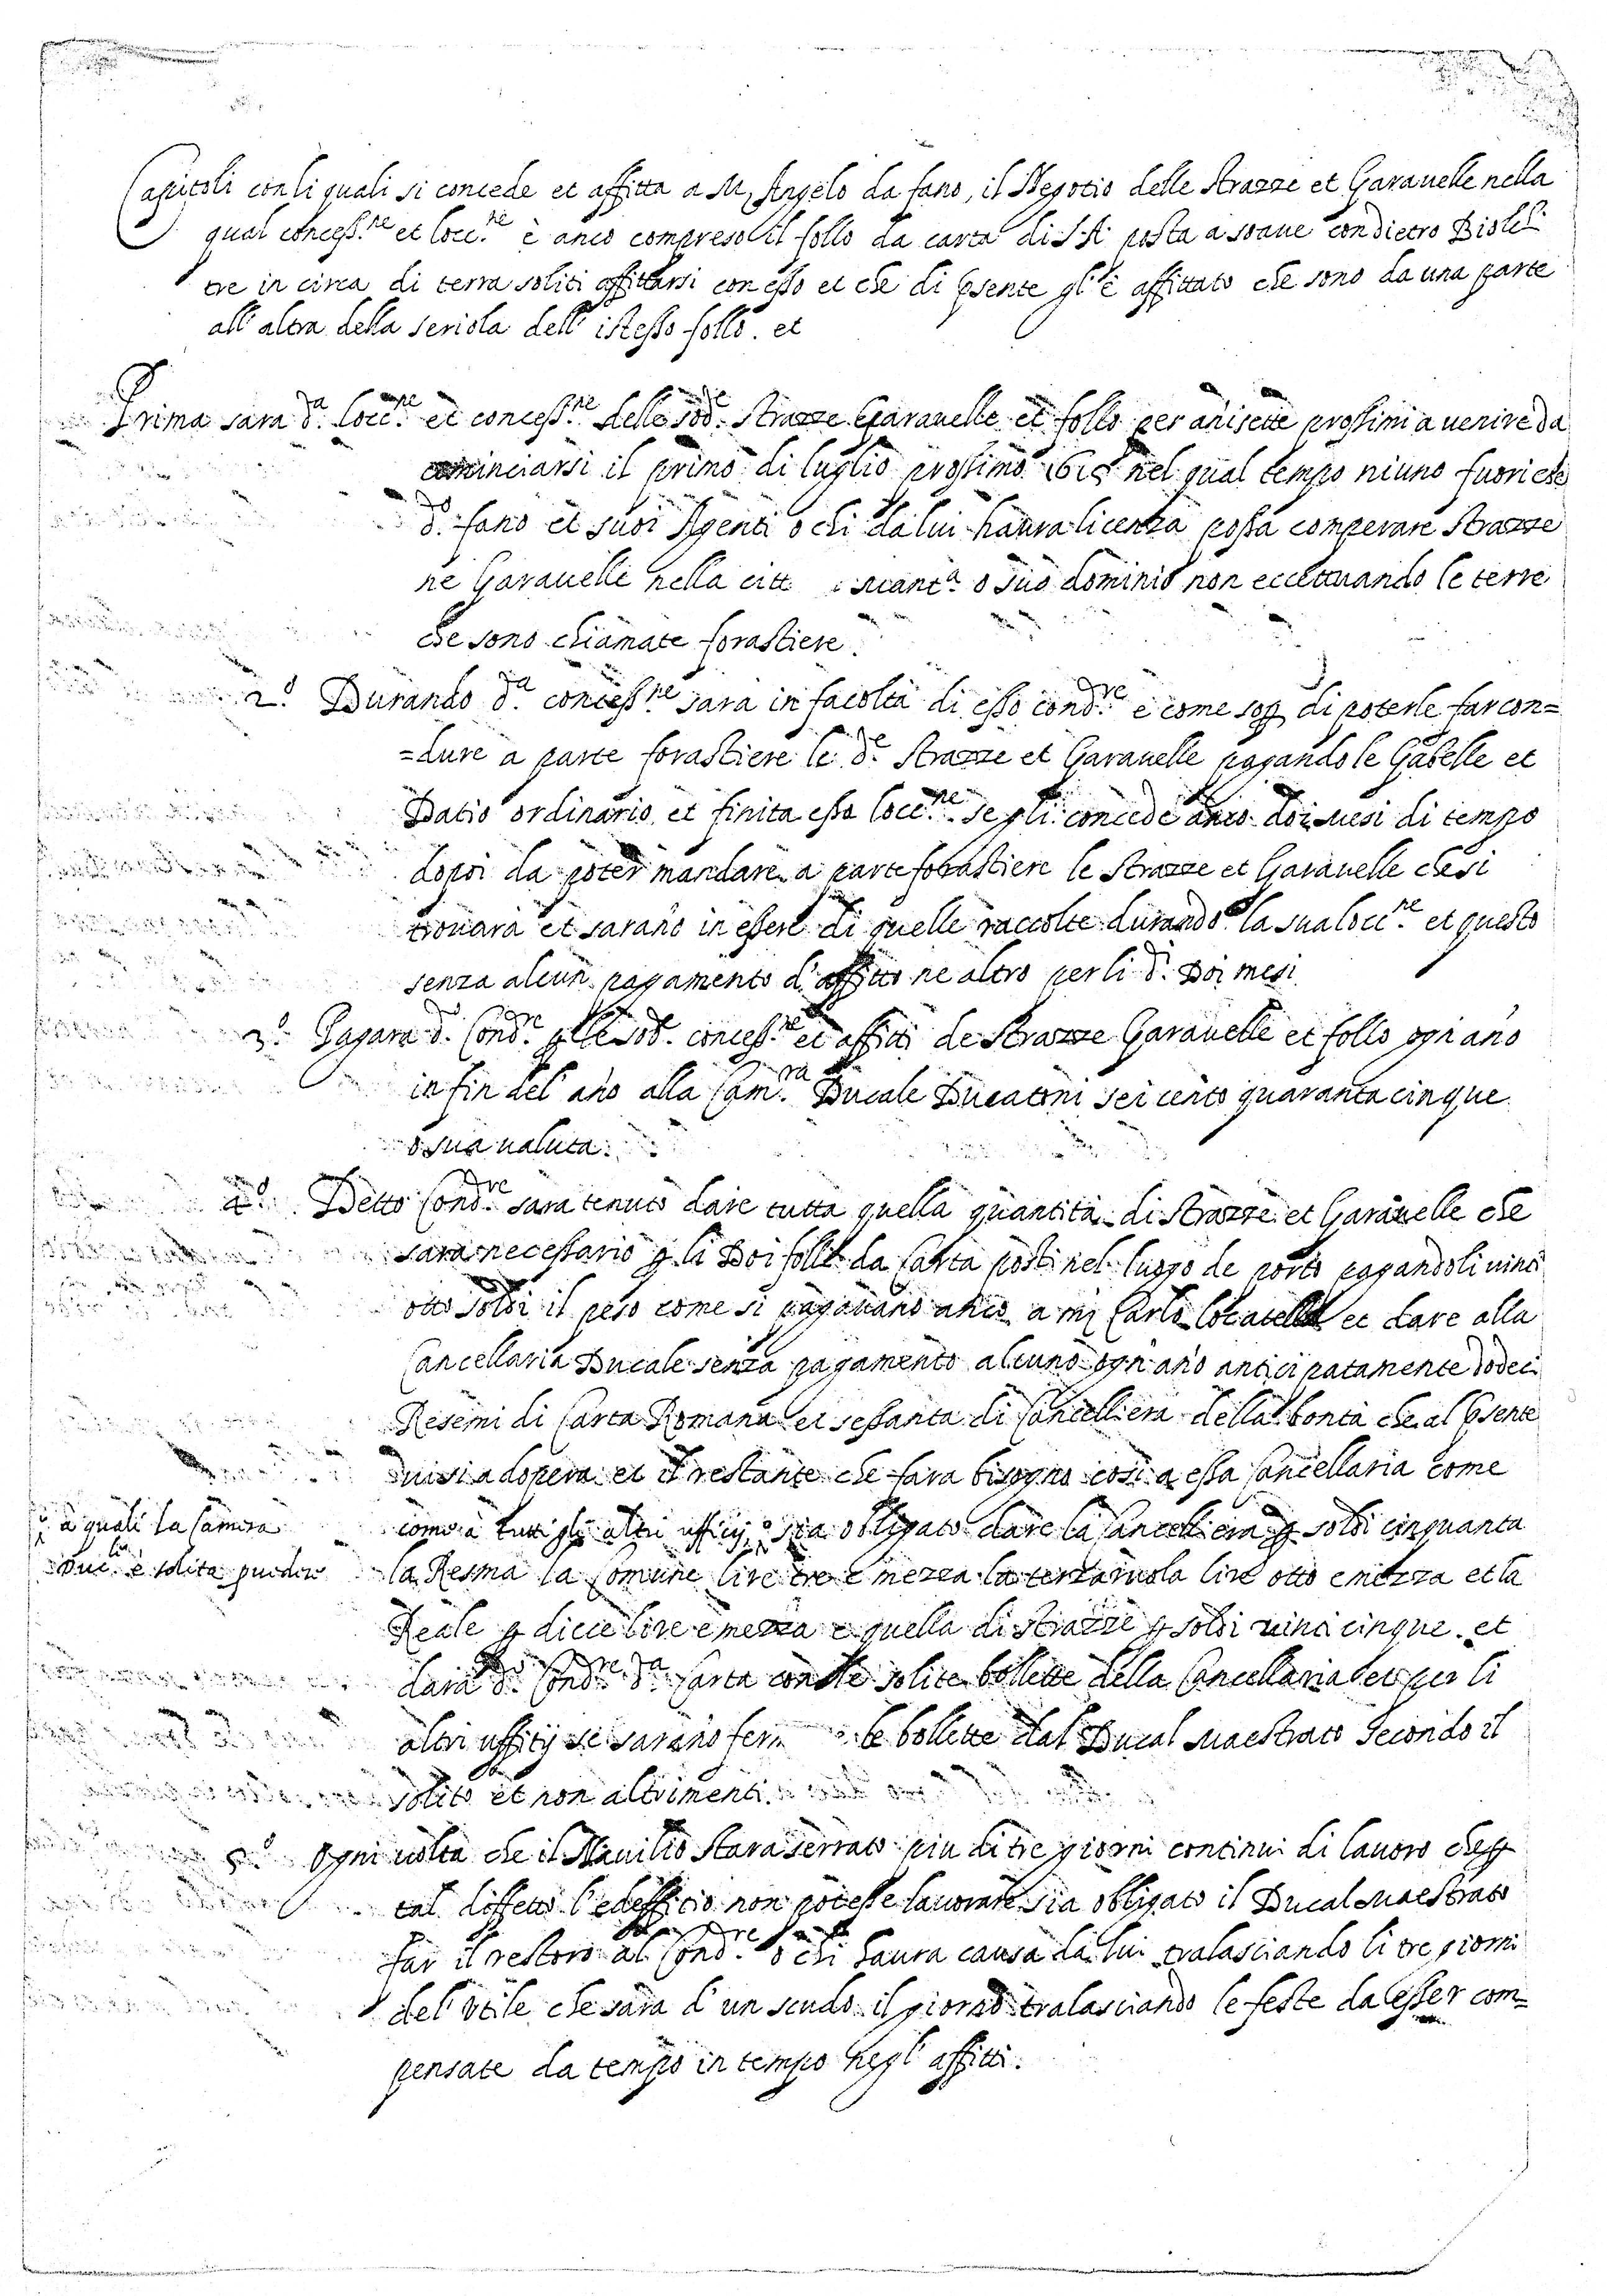 Capitoli con li quali si concede et affitta a M. Angelo da fano, il Negotio delle Strazze et Garauelle nella
qual concess.ne et locc.ne è anco compreso il follo da carta di S.A. posta a soaue con dietro Biol.
tre in circa di terra soliti affittarsi con esso et che di psente gl'è affittato che sono da una parte
all'altra della seriola dell'istesso follo. et
Prima sara d.a locc.ne et concess.ne delle sod.e Strazze Garauelle et follo per ani sette prossimi a uenire da
cominciarsi il primo di luglio prossimo 1615 nel qual tempo niuno fuori che
d.o fano et suoi Agenti o chi da lui haura licenza possa comperare Strazze
ne Garauelle nella citt Mant.a o suo dominio non eccettuando le terre
che sono chiamate forastiere.
2.o Durando d.a concess.ne sara in facoltà di esso cond.re e come sop di poterle far con=
=dure a parte forastiere le d.e Strazze et Garauelle pagando le Gabelle et
Datio ordinario et finita essa locc.ne se gli concede anco doi mesi di tempo
dopoi da poter mandare a parte forastiere le Strazze et Garauelle che si
trouara et sarano in essere di quelle raccolte durando la sua locc.ne et questo
senza alcun pagamento d'affitto ne altro per li d.i Doi mesi
3.o Pagara d.o Cond.re p le sod.e concess.ne et affitti de Strazze Garauelle et follo ogn'ano
in fin del'ano alla Cam.ra Ducale Ducatoni sei cento quaranta cinque
o sua ualuta.
4.o Detto Cond.re sara tenuto dare tutta quella quantità di Strazze et Garauelle che
sara necessario p li Doi folli da Carta posti nel luogo de porto pagandoli uinti
otto soldi il peso come si pagauano anco a m. Carlo Locatelli et dare alla
Cancellaria Ducale senza pagamento alcuno ogn'ano anticipatamente dodeci
Resemi di Carta Romana et sessanta di Cancelliera della bontà che al psente
iui si adopera et il restante che fara bisogno così a essa Cancellaria come
como à tutti gli altri ufficij sia obligato dare la Cancelliera p soldi cinquanta
à quali la Camera
Duc.le è solita prouedere
la Resma la Comune lire tre e mezza la terzaruola lire otto e mezza et la
Reale p diece lire e mezza e quella di Strazze p soldi uinti cinque. et
dara d.o Cond.re d.a Carta con le solite bollette della Cancellaria et per li
altri ufficij se sarano ferm le bollette dal Ducal Maestrato secondo il
solito et non altrimenti.
5.o Ogni uolta che il Nauilio stara serrato piu di tre giorni continui di lauoro che p
tal diffetto l'edifficio non potesse lauorare sia obligato il Ducal Maestrato
far il restoro al Cond.re o chi haura causa da lui tralasciando li tre giorni
del'utile che sara d'un scudo il giorno tralasciando le feste da esser com=
pensate da tempo in tempo negl'affitti.